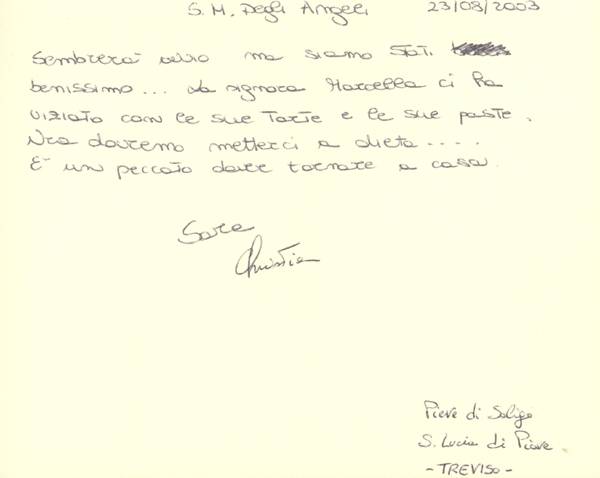 S. M. Degli Angeli 23/08/2003
Sembrerà ovvio ma siamo stati
benissimo... La signora Marcella ci ha
viziato con le sue torte e le sue paste.
Ora dovremo metterci a dieta....
E' un peccato dover tornare a casa.
Sara
Christian
Pieve di Soligo
S. Lucia di Piave
- TREVISO -